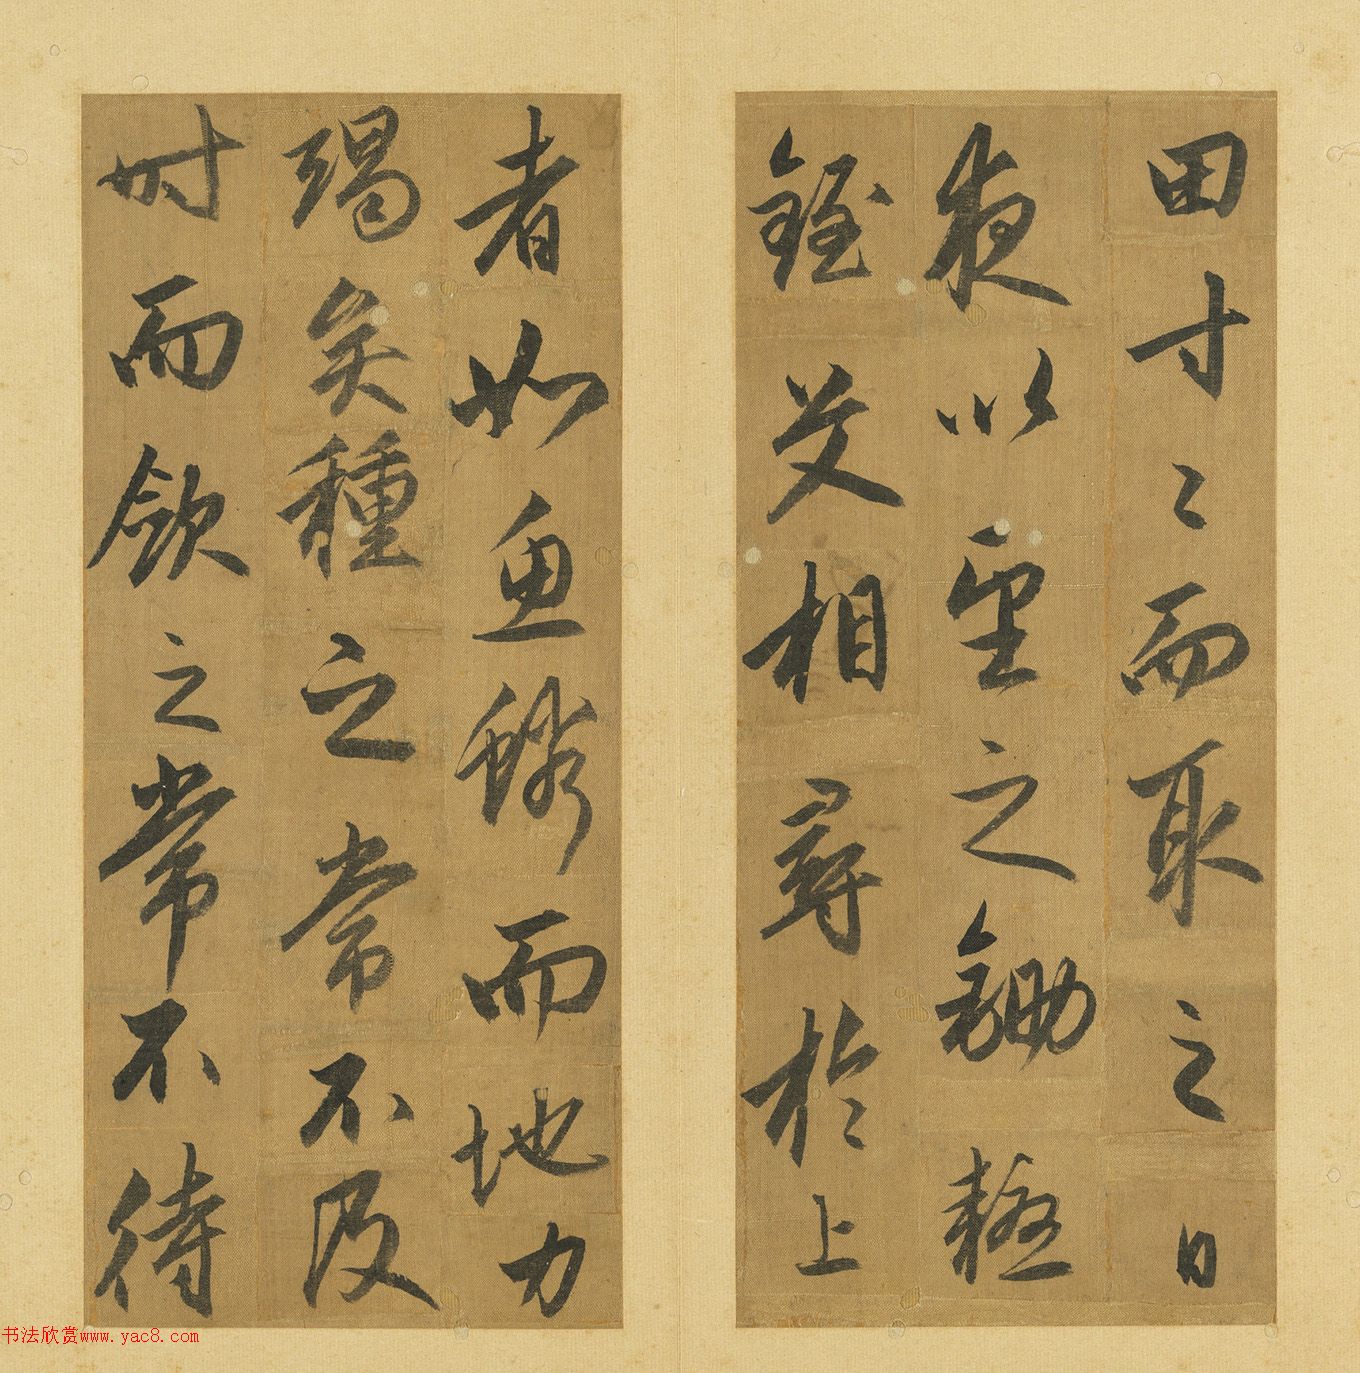 田寸〻而取之日
夜以望之鋤耰
銍艾相尋於上
者如魚鱗而地力
竭矣種之常不及
時而斂之常不待
书法欣赏www.yac8.com